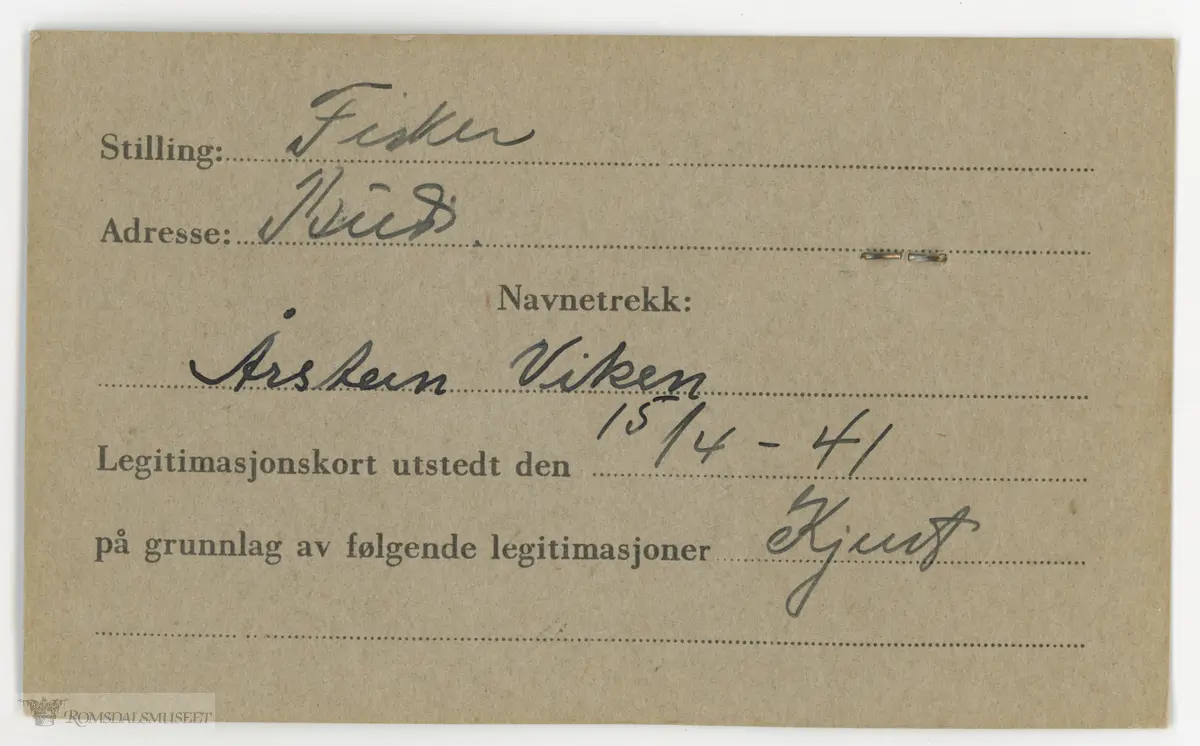 Stilling: Fisker
Adresse: Bud.
Navnetrekk:
Årstein Viken
Legitimasjonskort utstedt den 15/4 - 41
på grunnlag av følgende legitimasjoner Kjent
ROMSDALSMUSEET